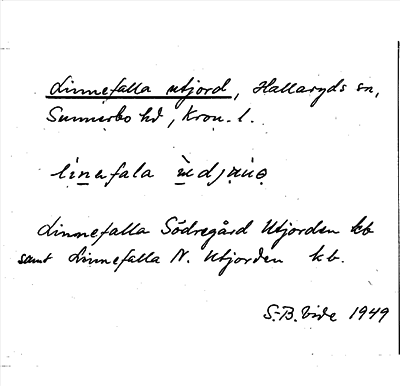 Linnefalla utjord, Hallaryds sn,
Sunnerbo hd, Kron. l.
Linnefalla Södregård Utjorden kb
samt Linnefalla N. Utjorden kb.
S.-B. Vide 1949